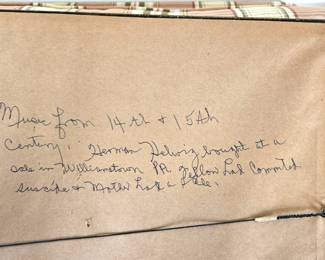 Music from 14th & 15th
Century. Herman Helwig bought at a
sale in Williamstown PA. Fellow had Commited
suicide & Mother had a Sale.